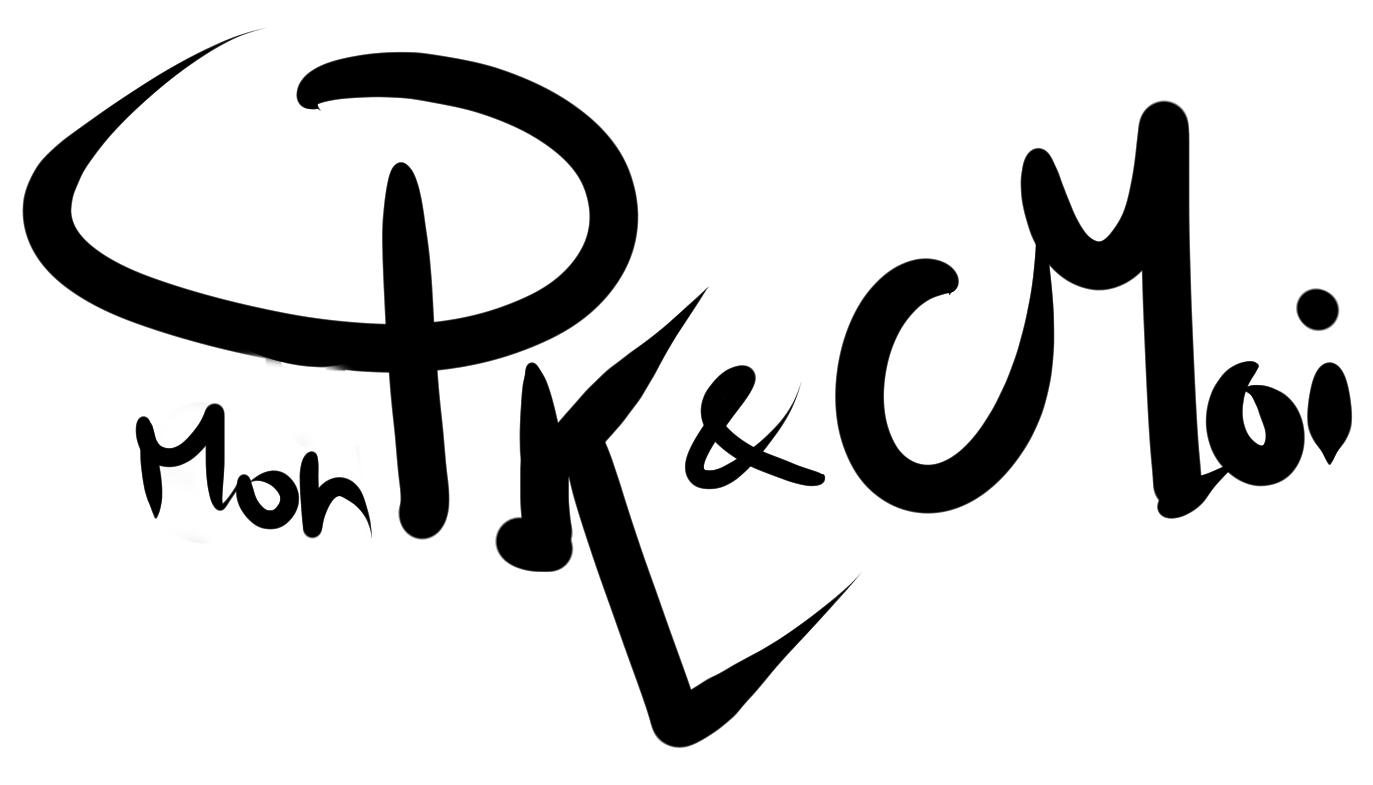 Mon PK & Moi